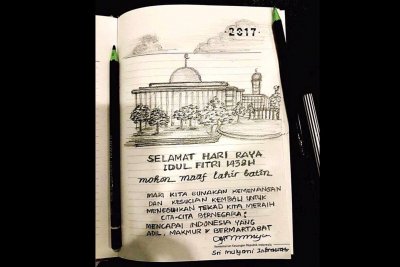 2017
SELAMAT HARI RAYA
IDUL FITRI 1438H
mohon maaf lahir batin
MARI KITA GUNAKAN KEMENANGAN
DAN KESUCIAN KEMBALI UNTUK
MENEGUHKAN TEKAD KITA MERAIH
CITA-CITA BERNEGARA:
MENCAPAI INDONESIA YANG
ADIL, MAKMUR & BERMARTABAT
Sri Mulyani Indrawati